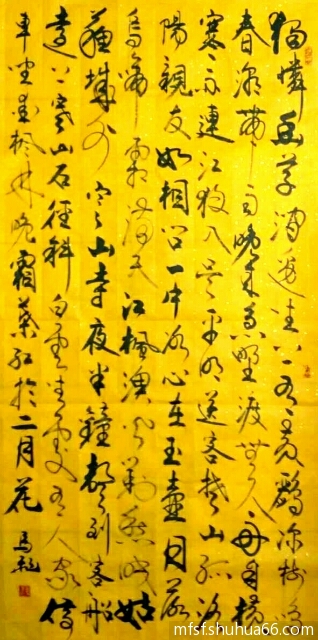 獨憐幽草澗邊生上有黃鸝深樹鳴
春潮帶雨晚來急野渡無人舟自橫
寒雨連江夜入吳平明送客楚山孤洛
陽親友如相問一片冰心在玉壺月落
烏啼霜滿天江楓漁火對愁眠姑
蘇城外寒山寺夜半鐘聲到客船
遠上寒山石徑斜白雲生處有人家停
車坐愛楓林晚霜葉紅於二月花
馬
mfsfshuhua66.com